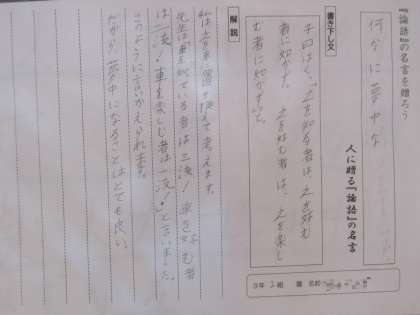 『論語』の名言を贈ろう
何かに夢中な
人に贈る『論語』の名言
3年 2組 名前
書き下し文
子曰はく、「之を知る者は、之を好む
者に如かず。之を好む者は、之を楽し
む者に如かず。」と。
解説
私は之を車に置き換えて考えます。
先生は「車を知っている者は三流!車を好む者
は二流!車を楽しむ者は一流!」と言いました。
このように言いかえられます。
だから、夢中になることはとても良い。